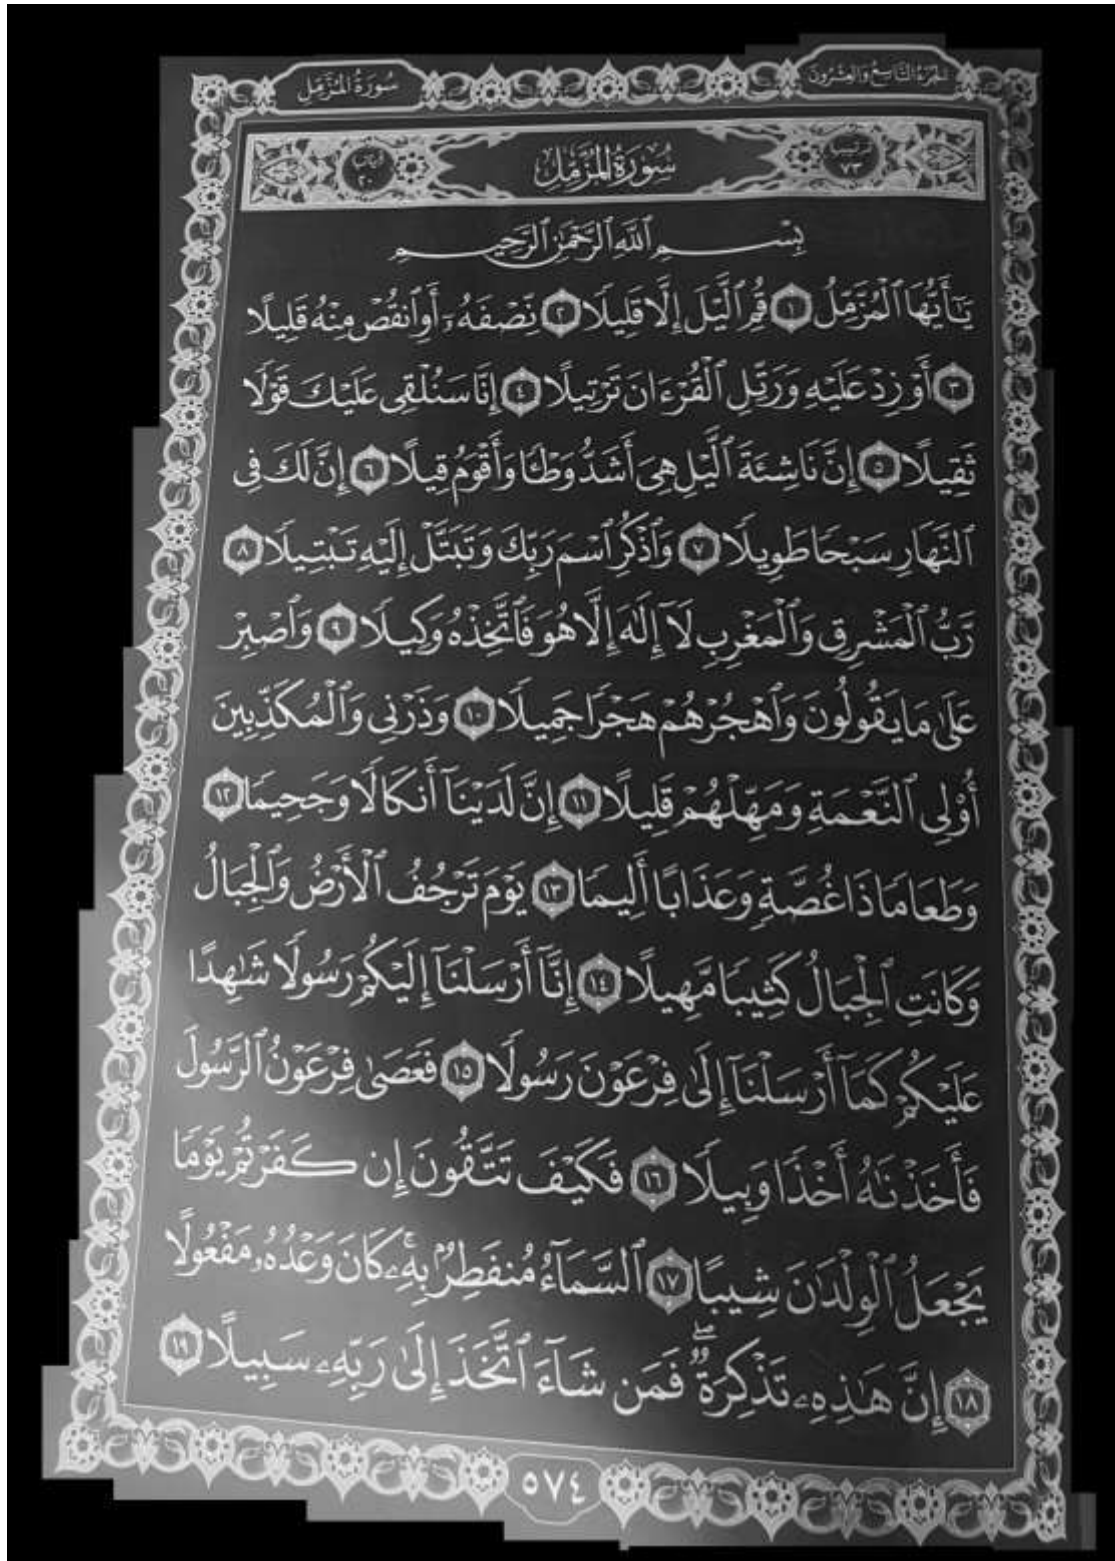 الجزء التاسع والعشرون
سورة المزمل
ترتيبها ٧٣
سُورَةُ الْمُزَّمِّلِ
آياتها ٢٠
بِسْمِ ٱللَّهِ ٱلرَّحْمَٰنِ ٱلرَّحِيمِ
يَٰٓأَيُّهَا ٱلْمُزَّمِّلُ ١ قُمِ ٱلَّيْلَ إِلَّا قَلِيلًا ٢ نِّصْفَهُۥٓ أَوِ ٱنقُصْ مِنْهُ قَلِيلًا
٣ أَوْ زِدْ عَلَيْهِ وَرَتِّلِ ٱلْقُرْءَانَ تَرْتِيلًا ٤ إِنَّا سَنُلْقِى عَلَيْكَ قَوْلًا
ثَقِيلًا ٥ إِنَّ نَاشِئَةَ ٱلَّيْلِ هِىَ أَشَدُّ وَطْـًٔا وَأَقْوَمُ قِيلًا ٦ إِنَّ لَكَ فِى
ٱلنَّهَارِ سَبْحًا طَوِيلًا ٧ وَٱذْكُرِ ٱسْمَ رَبِّكَ وَتَبَتَّلْ إِلَيْهِ تَبْتِيلًا ٨
رَّبُّ ٱلْمَشْرِقِ وَٱلْمَغْرِبِ لَآ إِلَٰهَ إِلَّا هُوَ فَٱتَّخِذْهُ وَكِيلًا ٩ وَٱصْبِرْ
عَلَىٰ مَا يَقُولُونَ وَٱهْجُرْهُمْ هَجْرًا جَمِيلًا ١٠ وَذَرْنِى وَٱلْمُكَذِّبِينَ
أُو۟لِى ٱلنَّعْمَةِ وَمَهِّلْهُمْ قَلِيلًا ١١ إِنَّ لَدَيْنَآ أَنكَالًا وَجَحِيمًا ١٢
وَطَعَامًا ذَا غُصَّةٍ وَعَذَابًا أَلِيمًا ١٣ يَوْمَ تَرْجُفُ ٱلْأَرْضُ وَٱلْجِبَالُ
وَكَانَتِ ٱلْجِبَالُ كَثِيبًا مَّهِيلًا ١٤ إِنَّآ أَرْسَلْنَآ إِلَيْكُمْ رَسُولًا شَٰهِدًا
عَلَيْكُمْ كَمَآ أَرْسَلْنَآ إِلَىٰ فِرْعَوْنَ رَسُولًا ١٥ فَعَصَىٰ فِرْعَوْنُ ٱلرَّسُولَ
فَأَخَذْنَٰهُ أَخْذًا وَبِيلًا ١٦ فَكَيْفَ تَتَّقُونَ إِن كَفَرْتُمْ يَوْمًا
يَجْعَلُ ٱلْوِلْدَٰنَ شِيبًا ١٧ ٱلسَّمَآءُ مُنفَطِرٌۢ بِهِۦ ۚ كَانَ وَعْدُهُۥ مَفْعُولًا
١٨ إِنَّ هَٰذِهِۦ تَذْكِرَةٌ ۖ فَمَن شَآءَ ٱتَّخَذَ إِلَىٰ رَبِّهِۦ سَبِيلًا ١٩
٥٧٤